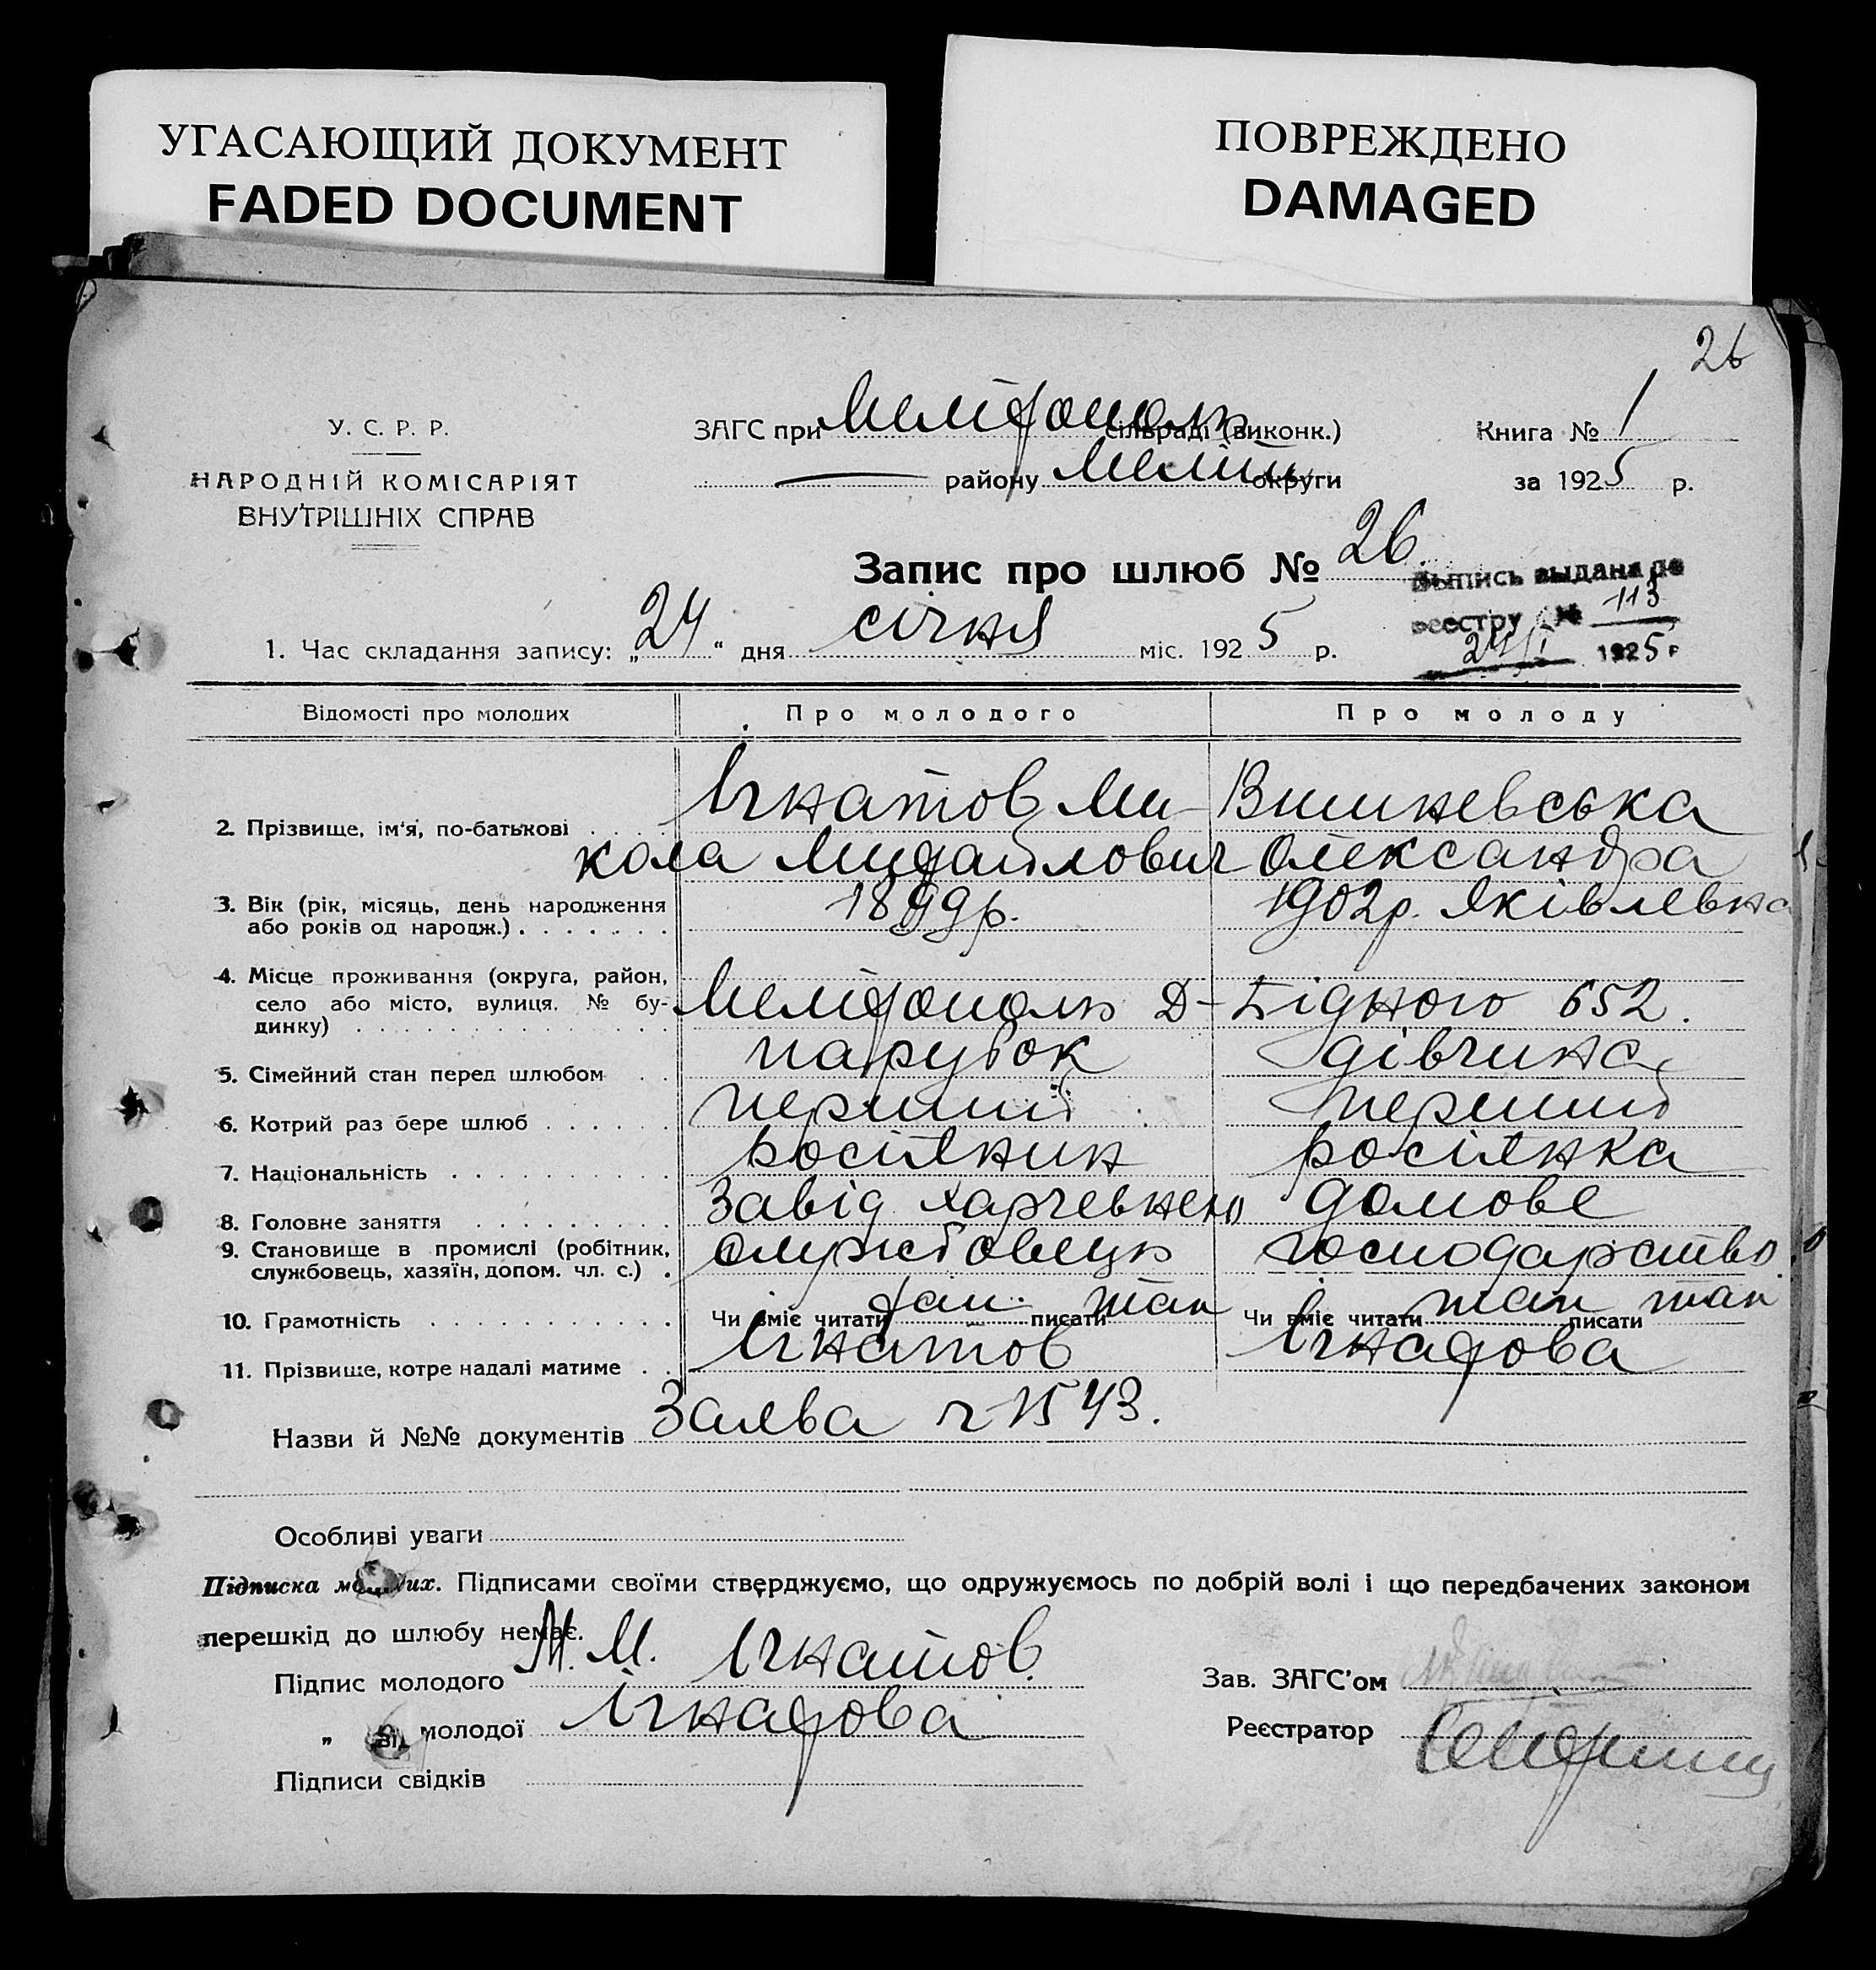 УГАСАЮЩИЙ ДОКУМЕНТ
FADED DOCUMENT
ПОВРЕЖДЕНО
DAMAGED
26
У. С. Р. Р.
НАРОДНІЙ КОМІСАРІЯТ
ВНУТРІШНІХ СПРАВ
ЗАГС при Мелітополь сільраді (виконк.)
району Меліт. округи
Книга № 1
за 1925 р.
Запис про шлюб № 26.
Выпись выдана по
реестру № 113
24/I 1925 г
1. Час складання запису: „24“ дня січня міс. 1925 р.
Відомості про молодих Про молодого Про молоду
2. Прізвище, ім'я, по-батькові Ігнатов Ми- Вишневська
кола Михайлович Олександра
3. Вік (рік, місяць, день народження 1899р. 1902р. Яківлевна
або років од народж.)
4. Місце проживання (округа, район,
село або місто, вулиця. № бу- Мелітополь Д-Бідного 652.
динку)
5. Сімейний стан перед шлюбом парубок дівчина
6. Котрий раз бере шлюб перший перший
7. Національність росіянин росіянка
8. Головне заняття Завід харчевнею домове
9. Становище в промислі (робітник, службовець господарство.
службовець, хазяїн, допом. чл. с.)
10. Грамотність Чи вміє читати так писати так Чи вміє читати так писати так
11. Прізвище, котре надалі матиме Ігнатов Ігнатова
Назви й №№ документів Заява ч 1543.
Особливі уваги
Підписка молодих. Підписами своїми стверджуємо, що одружуємось по добрій волі і що передбачених законом
перешкід до шлюбу немає.
Підпис молодого М. М. Ігнатов.
Зав. ЗАГС'ом
„ молодої Ігнатова
Реєстратор
Підписи свідків